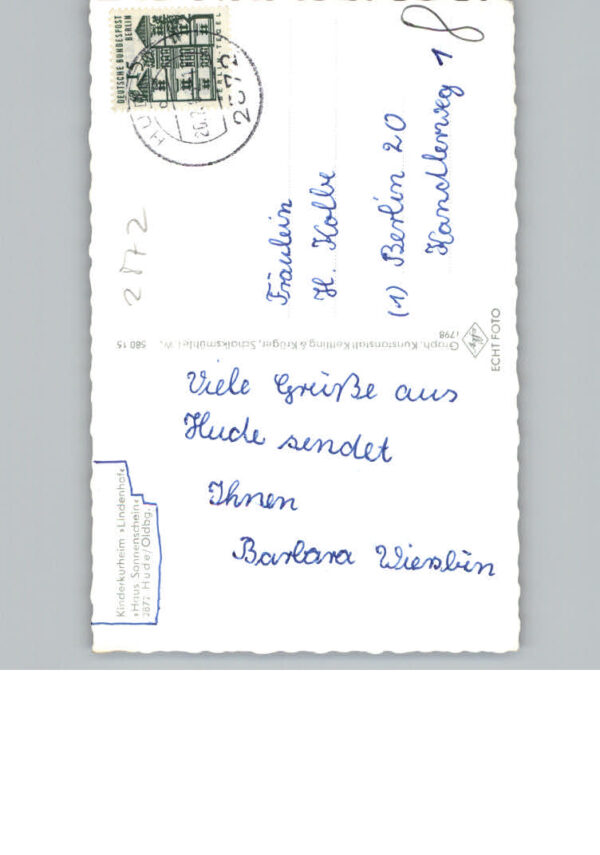 DEUTSCHE BUNDESPOST
BERLIN
15
TEGEL
HUDE
2872
8
2872
Fräulein
H. Kolbe
(1) Berlin 20
Kandlerweg 1
580 15
Graph. Kunstanstalt Kettling & Krüger, Schalksmühle i. W.
1798
ECHT FOTO
Viele Grüße aus
Hude sendet
Ihnen
Barbara
Kinderkurheim »Lindenhof«
»Haus Sonnenschein«
2872 Hude/Oldbg.